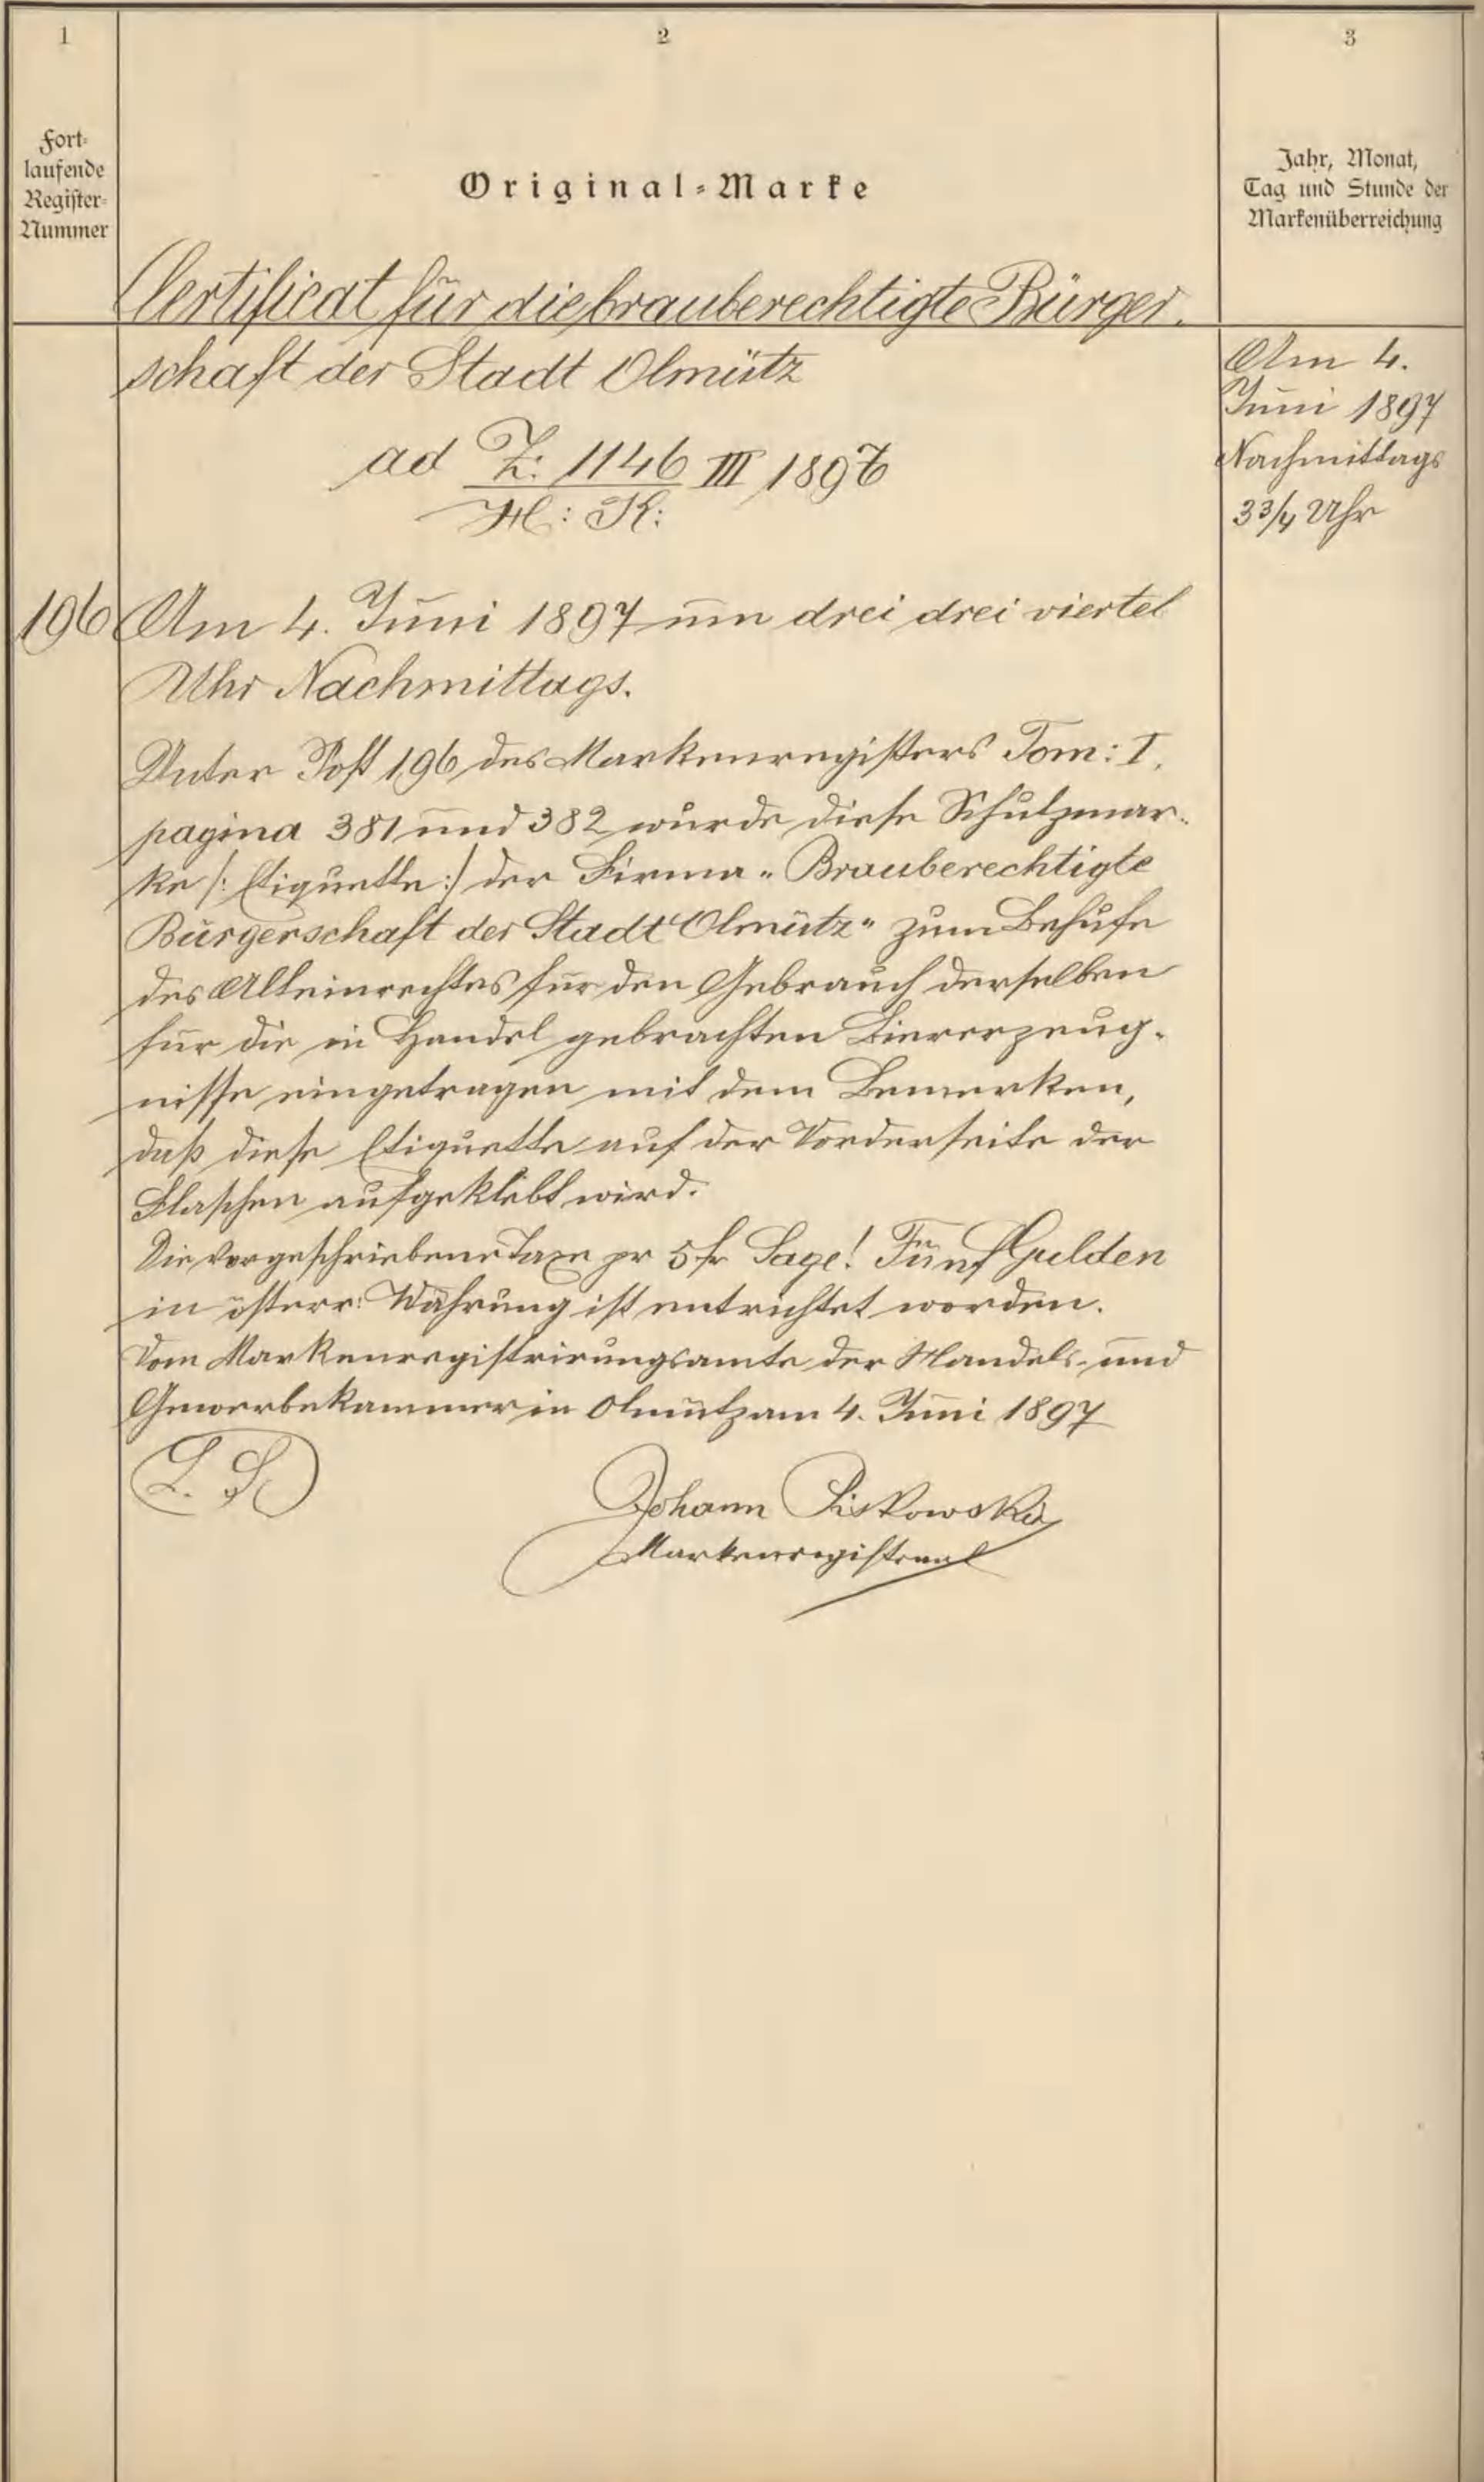 1
2
3
Fort-
laufende
Register-
Nummer
Original-Marke
Jahr, Monat,
Tag und Stunde der
Markenüberreichung
Certificat für die brauberechtigte Bürger-
schaft der Stadt Olmütz
Am 4.
Juni 1897
Nachmittags
3 3/4 Uhr
ad Z: 1146 III 1897
H: K:
196
Am 4. Juni 1897 um drei drei viertel
Uhr Nachmittags.
Unter Post 196 des Markenregisters Tom: I.
pagina 381 und 382 wurde diese Schutzmar-
ke /: Etiquette :/ der Firma "Brauberechtigte
Bürgerschaft der Stadt Olmütz" zum Behufe
des Alleinrechtes für den Gebrauch derselben
für die in Handel gebrachten Biererzeug-
nisse eingetragen mit dem Bemerken,
daß diese Etiquette auf der Vorderseite der
Flaschen aufgeklebt wird.
Die vorgeschriebene Taxe pr 5 fr Sage! Fünf Gulden
in österr: Währung ist entrichtet worden.
Vom Markenregistrirungsamte der Handels- und
Gewerbekammer in Olmütz am 4. Juni 1897
L. S.
Johann